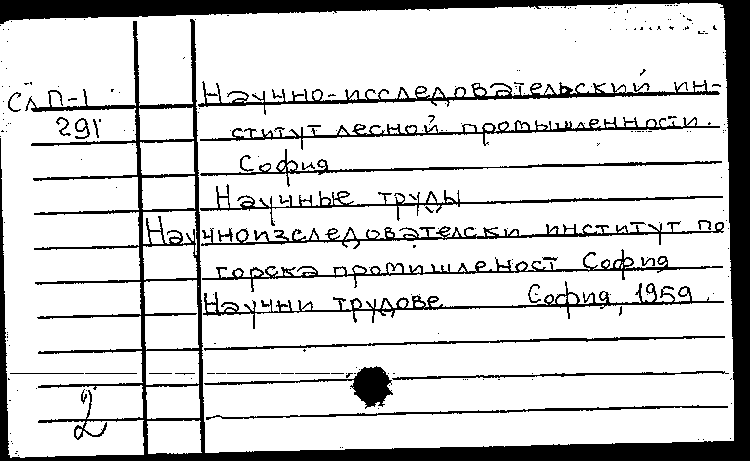 Сл П-1
291
Научно-исследовательский ин-
ститут лесной промышленности.
София
Научные труды
Научноизследователски институт по
горска промишленост София
Научни трудове София, 1959.
2